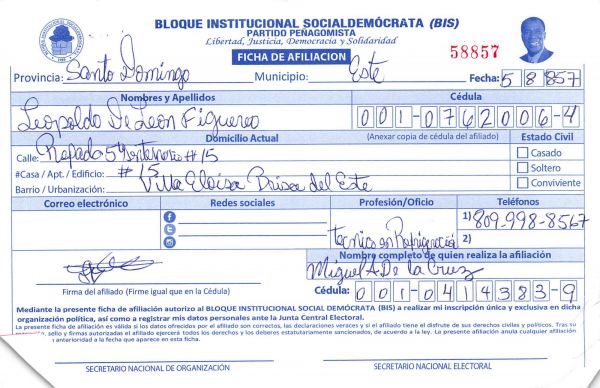 BLOQUE INSTITUCIONAL SOCIALDEMÓCRATA (BIS)
PARTIDO PEÑAGOMISTA
Libertad, Justicia, Democracia y Solidaridad
FICHA DE AFILIACION
58857
Provincia: Santo Domingo Municipio: Este Fecha: 5 8 857
Nombres y Apellidos Cédula
Leopoldo De Leon Figuereo 001-0762006-4
Domicilio Actual (Anexar copia de cédula del afiliado) Estado Civil
Calle: #15
Casado
#Casa / Apt. / Edificio: #15
Soltero
Barrio / Urbanización: Villa Eloisa Brisa del Este
Conviviente
Correo electrónico Redes sociales Profesión/Oficio Teléfonos
1) 809-998-8567
Tecnico en Refrigeración 2)
Nombre completo de quien realiza la afiliación
Miguel A. De la Cruz
Firma del afiliado (Firme igual que en la Cédula) Cédula: 001-0414383-9
Mediante la presente ficha de afiliación autorizo al BLOQUE INSTITUCIONAL SOCIAL DEMÓCRATA (BIS) a realizar mi inscripción única y exclusiva en dicha
organización política, así como a registrar mis datos personales ante la Junta Central Electoral.
La presente ficha de afiliación es válida si los datos ofrecidos por el afiliado son correctos, las declaraciones veraces y si el afiliado tiene el disfrute de sus derechos civiles y políticos. Tras su
sello y firmas autorizadas el afiliado ejercerá todos los derechos y los deberes estatutariamente sancionados, de acuerdo a la ley. La presente afiliación anula cualquier afiliación
anterioridad a la fecha que aparece en esta ficha.
SECRETARIO NACIONAL DE ORGANIZACIÓN SECRETARIO NACIONAL ELECTORAL